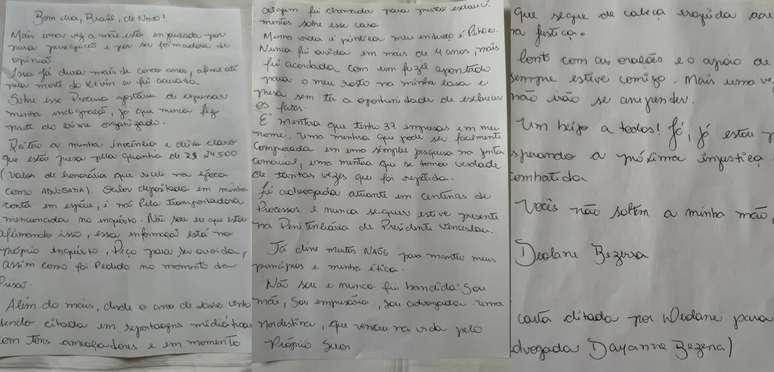 Bom dia, Brasil, de Novo!
Mais uma vez a mãe está enjaulada por
pura perseguição e por ser formadora de
opinião.
Isso já dura mais de cinco anos, afinal até
pela morte do Kevin eu fui acusada.
Sobre esse Processo gostaria de expressar
minha indignação, já que nunca fiz
parte do crime organizado.
Reitero a minha inocência e deixo claro
que estou presa pela quantia de R$ 24.500
(valor de honorários que recebi na época
como ADVOGADA). Valor depositado em minha
conta em espécie, e não pela transportadora
mencionada no inquérito. Não sou eu que estou
afirmando isso, essa informação está no
próprio inquérito. Peço para ser ouvida,
assim como foi Pedido no momento da
Prisão.
Além do mais, desde o ano de
sendo citada em reportagens midiáticas
em tons ameaçadores e em momento
algum fui chamada para prestar esclareci-
mentos sobre esse caso.
Minha vida é pública meu endereço é Público.
Nunca fui ouvida em mais de 4 anos, mas
fui acordada com um fuzil apontado
para o meu rosto na minha casa e
presa sem ter a oportunidade de esclarecer
os fatos.
É mentira que tenho 37 empresas em meu
nome. Uma mentira que pode ser facilmente
comprovada em uma simples pesquisa na junta
comercial, uma mentira que se torna verdade
de tantas vezes que foi repetida.
Fui advogada atuante em centenas de
Processos e nunca sequer estive presente
na Penitenciária de Presidente Venceslau.
Já disse muitos NÃOS para manter meus
princípios e minha ética.
Não sou e nunca fui bandida! Sou
mãe, sou empresária, sou advogada uma
nordestina, que venceu na vida pelo
Próprio Suor
que segue de cabeça erguida
na justiça.
conto com as orações e o apoio de
sempre esteve comigo. Mais uma ve
não irão se arrepender.
Um beijo a todos! Já, já estou
sperando a próxima injustiça
ombatida
Vocês não soltem a minha mão,
Deolane Bezerra
carta ditada por Deolane para
dvogada Dayanne Bezerra)